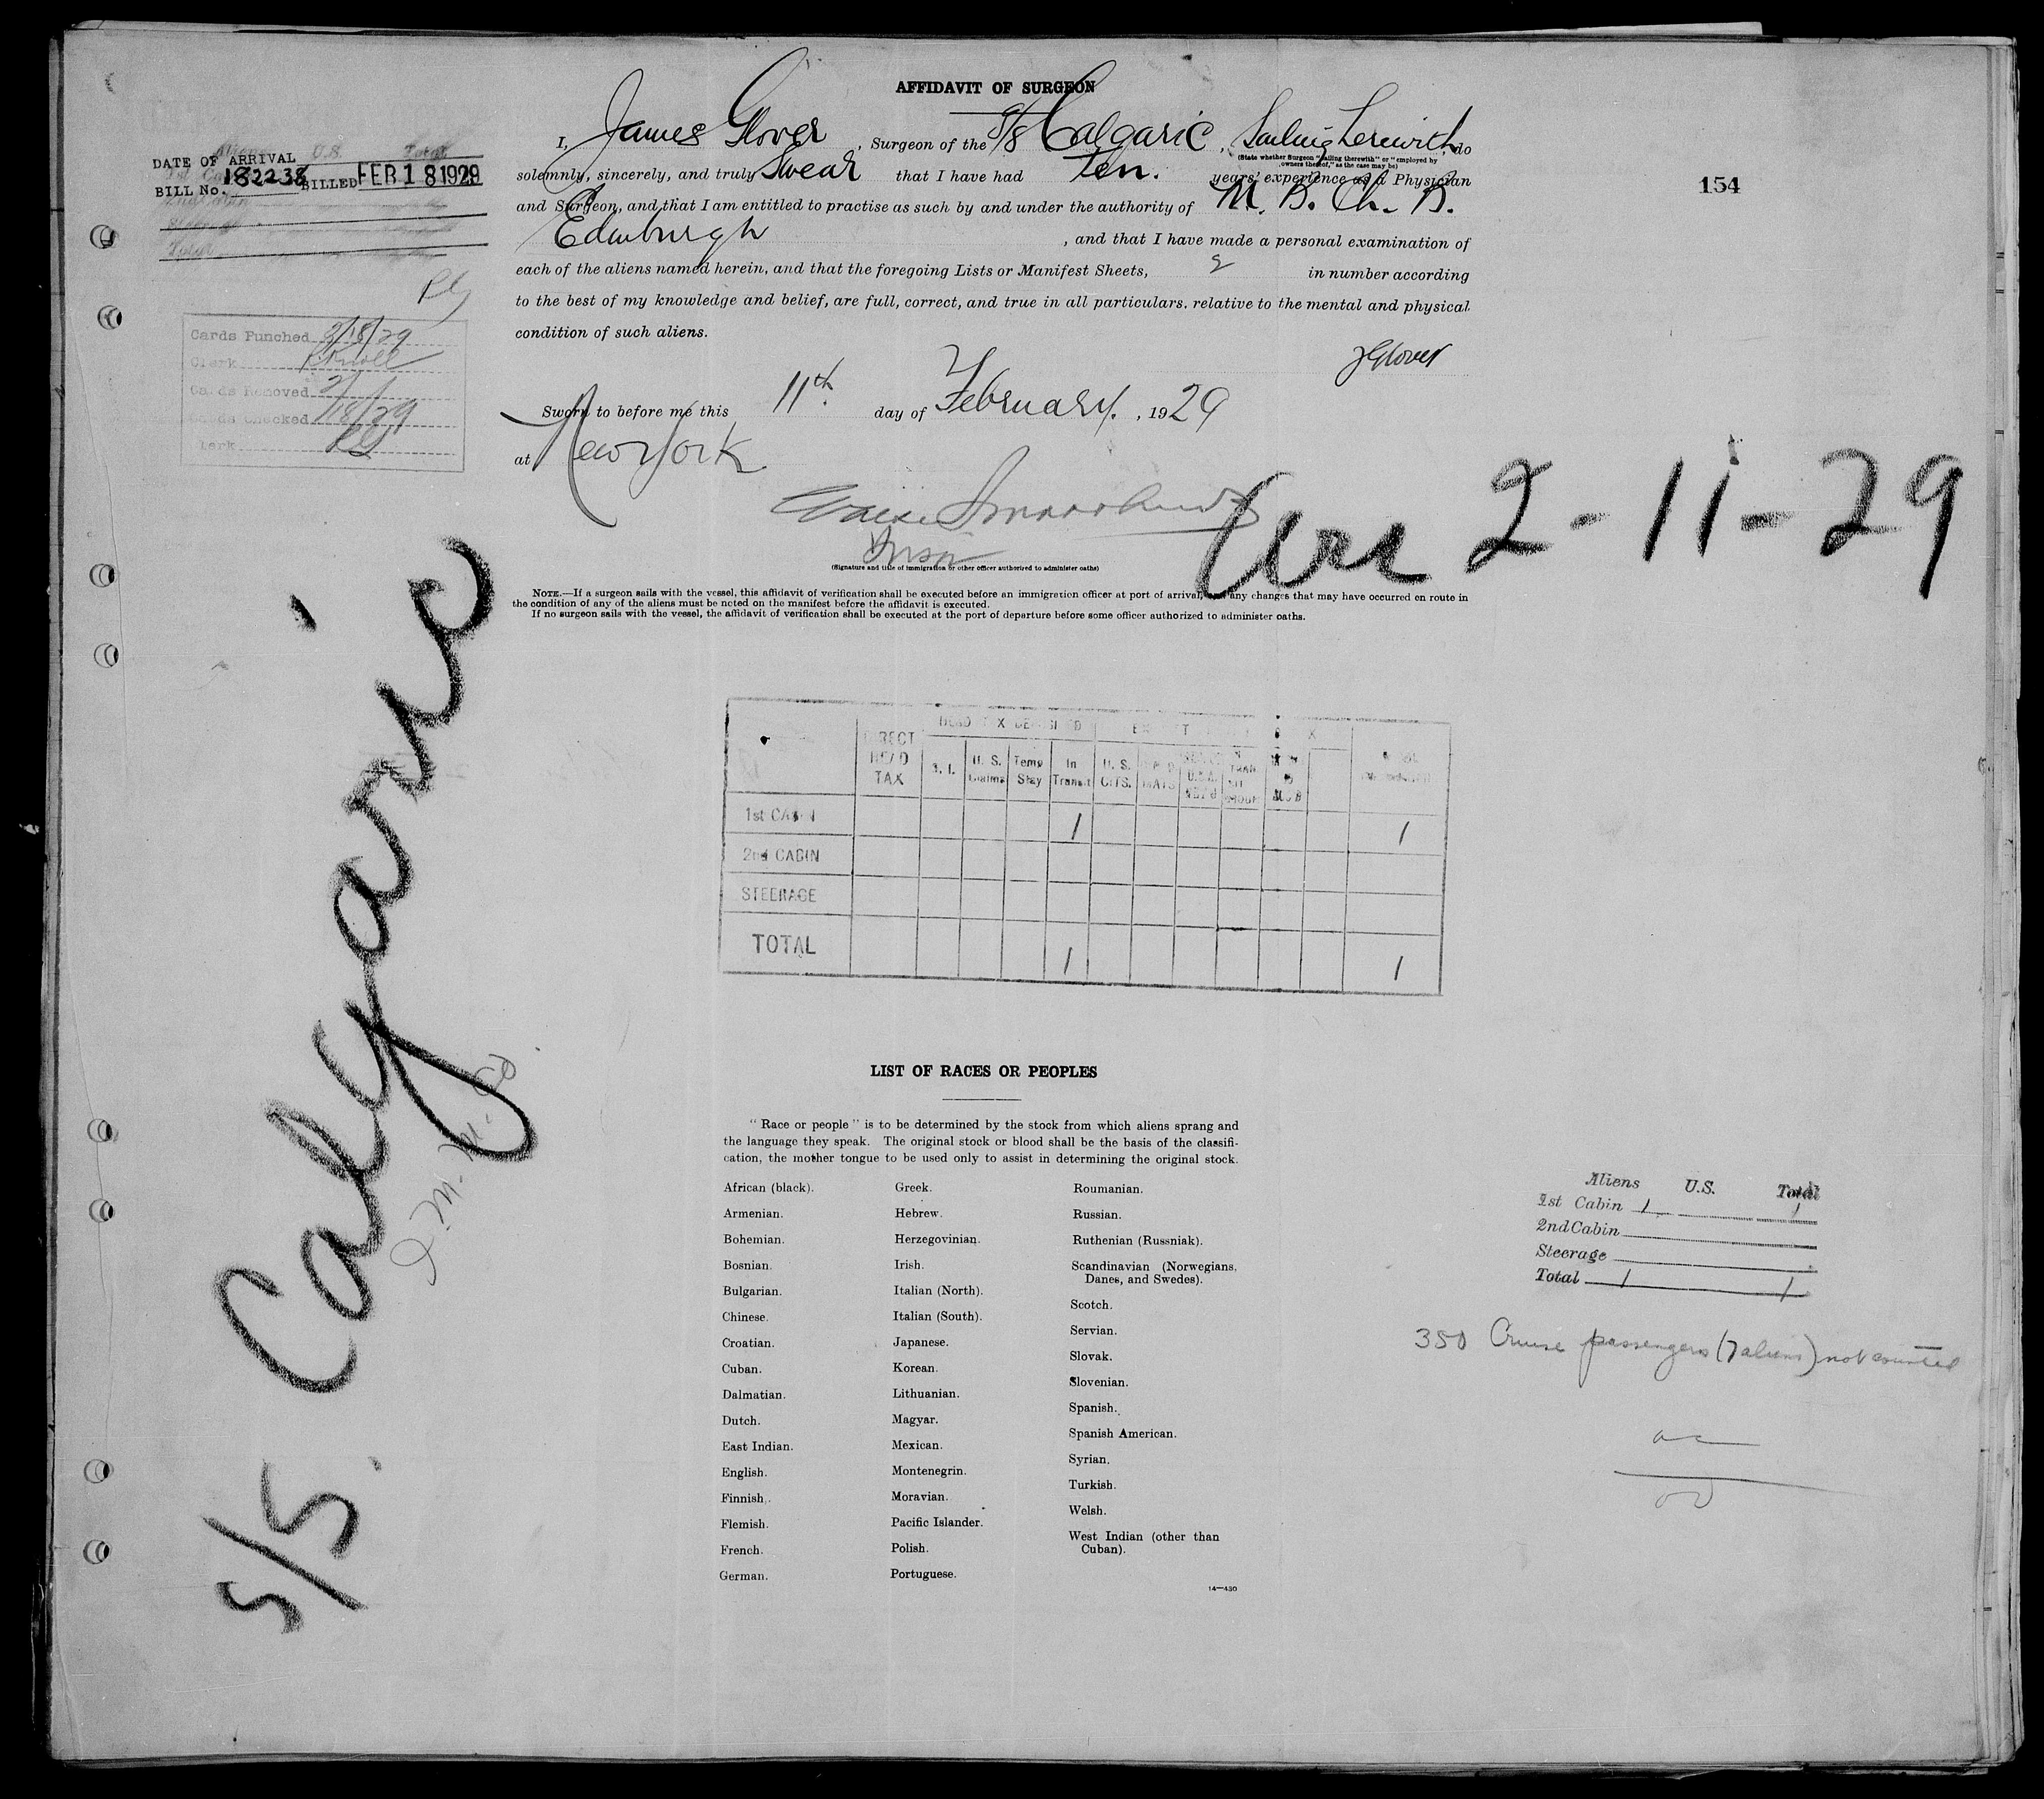 AFFIDAVIT OF SURGEON
I, James Glover, Surgeon of the S/S Calgaric, Sailing therewith, do
(State whether Surgeon "sailing therewith" or "employed by owners thereof," as the case may be)
solemnly, sincerely, and truly Swear that I have had Ten. years' experience as a Physician
and Surgeon, and that I am entitled to practise as such by and under the authority of M. B. Ch. B.
Edinburgh, and that I have made a personal examination of
each of the aliens named herein, and that the foregoing Lists or Manifest Sheets, 2 in number according
to the best of my knowledge and belief, are full, correct, and true in all particulars. relative to the mental and physical
condition of such aliens.
JGlover
Sworn to before me this 11th. day of February., 1929
at New York
(Signature and title of immigration or other officer authorized to administer oaths)
NOTE.—If a surgeon sails with the vessel, this affidavit of verification shall be executed before an immigration officer at port of arrival, any changes that may have occurred en route in
the condition of any of the aliens must be noted on the manifest before the affidavit is executed.
If no surgeon sails with the vessel, the affidavit of verification shall be executed at the port of departure before some officer authorized to administer oaths.
DATE OF ARRIVAL
BILL No. 182238 BILLED FEB 18 1929
154
Cards Punched 2/18/29
Clerk
Cards Removed 2/
Cards Checked 18/29
Clerk
Arr 2-11-29
S/S. Calgaric
I.M.M. Co.
DIRECT HEAD TAX
HEAD TAX
U. S. Claims
Temp Stay
In Transit
U. S. CITS.
1st CABIN 1 1
2nd CABIN
STEERAGE
TOTAL 1 1
LIST OF RACES OR PEOPLES
"Race or people" is to be determined by the stock from which aliens sprang and
the language they speak. The original stock or blood shall be the basis of the classifi-
cation, the mother tongue to be used only to assist in determining the original stock.
African (black).
Armenian.
Bohemian.
Bosnian.
Bulgarian.
Chinese.
Croatian.
Cuban.
Dalmatian.
Dutch.
East Indian.
English.
Finnish.
Flemish.
French.
German.
Greek.
Hebrew.
Herzegovinian.
Irish.
Italian (North).
Italian (South).
Japanese.
Korean.
Lithuanian.
Magyar.
Mexican.
Montenegrin.
Moravian.
Pacific Islander.
Polish.
Portuguese.
Roumanian.
Russian.
Ruthenian (Russniak).
Scandinavian (Norwegians,
Danes, and Swedes).
Scotch.
Servian.
Slovak.
Slovenian.
Spanish.
Spanish American.
Syrian.
Turkish.
Welsh.
West Indian (other than
Cuban).
14—430
Aliens U.S. Total
1st Cabin 1 1
2nd Cabin
Steerage
Total 1 1
350 Cruise passengers (7 aliens) not counted